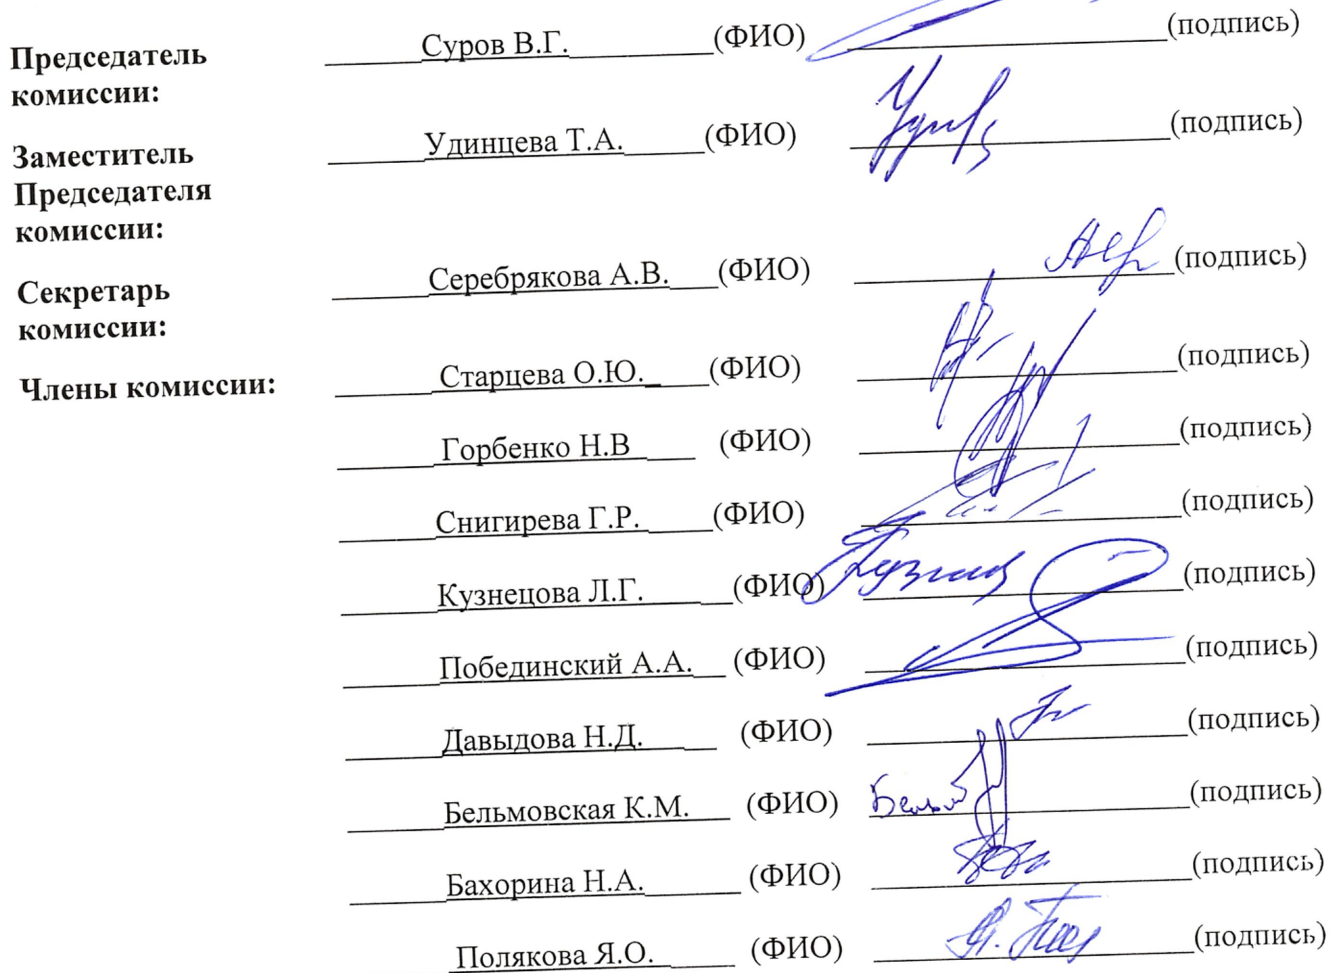 Председатель Суров В.Г. (ФИО) (подпись)
комиссии:
Заместитель Удинцева Т.А. (ФИО) (подпись)
Председателя
комиссии:
Секретарь Серебрякова А.В. (ФИО) (подпись)
комиссии:
Члены комиссии: Старцева О.Ю. (ФИО) (подпись)
Горбенко Н.В (ФИО) (подпись)
Снигирева Г.Р. (ФИО) (подпись)
Кузнецова Л.Г. (ФИО) (подпись)
Побединский А.А. (ФИО) (подпись)
Давыдова Н.Д. (ФИО) (подпись)
Бельмовская К.М. (ФИО) (подпись)
Бахорина Н.А. (ФИО) (подпись)
Полякова Я.О. (ФИО) (подпись)